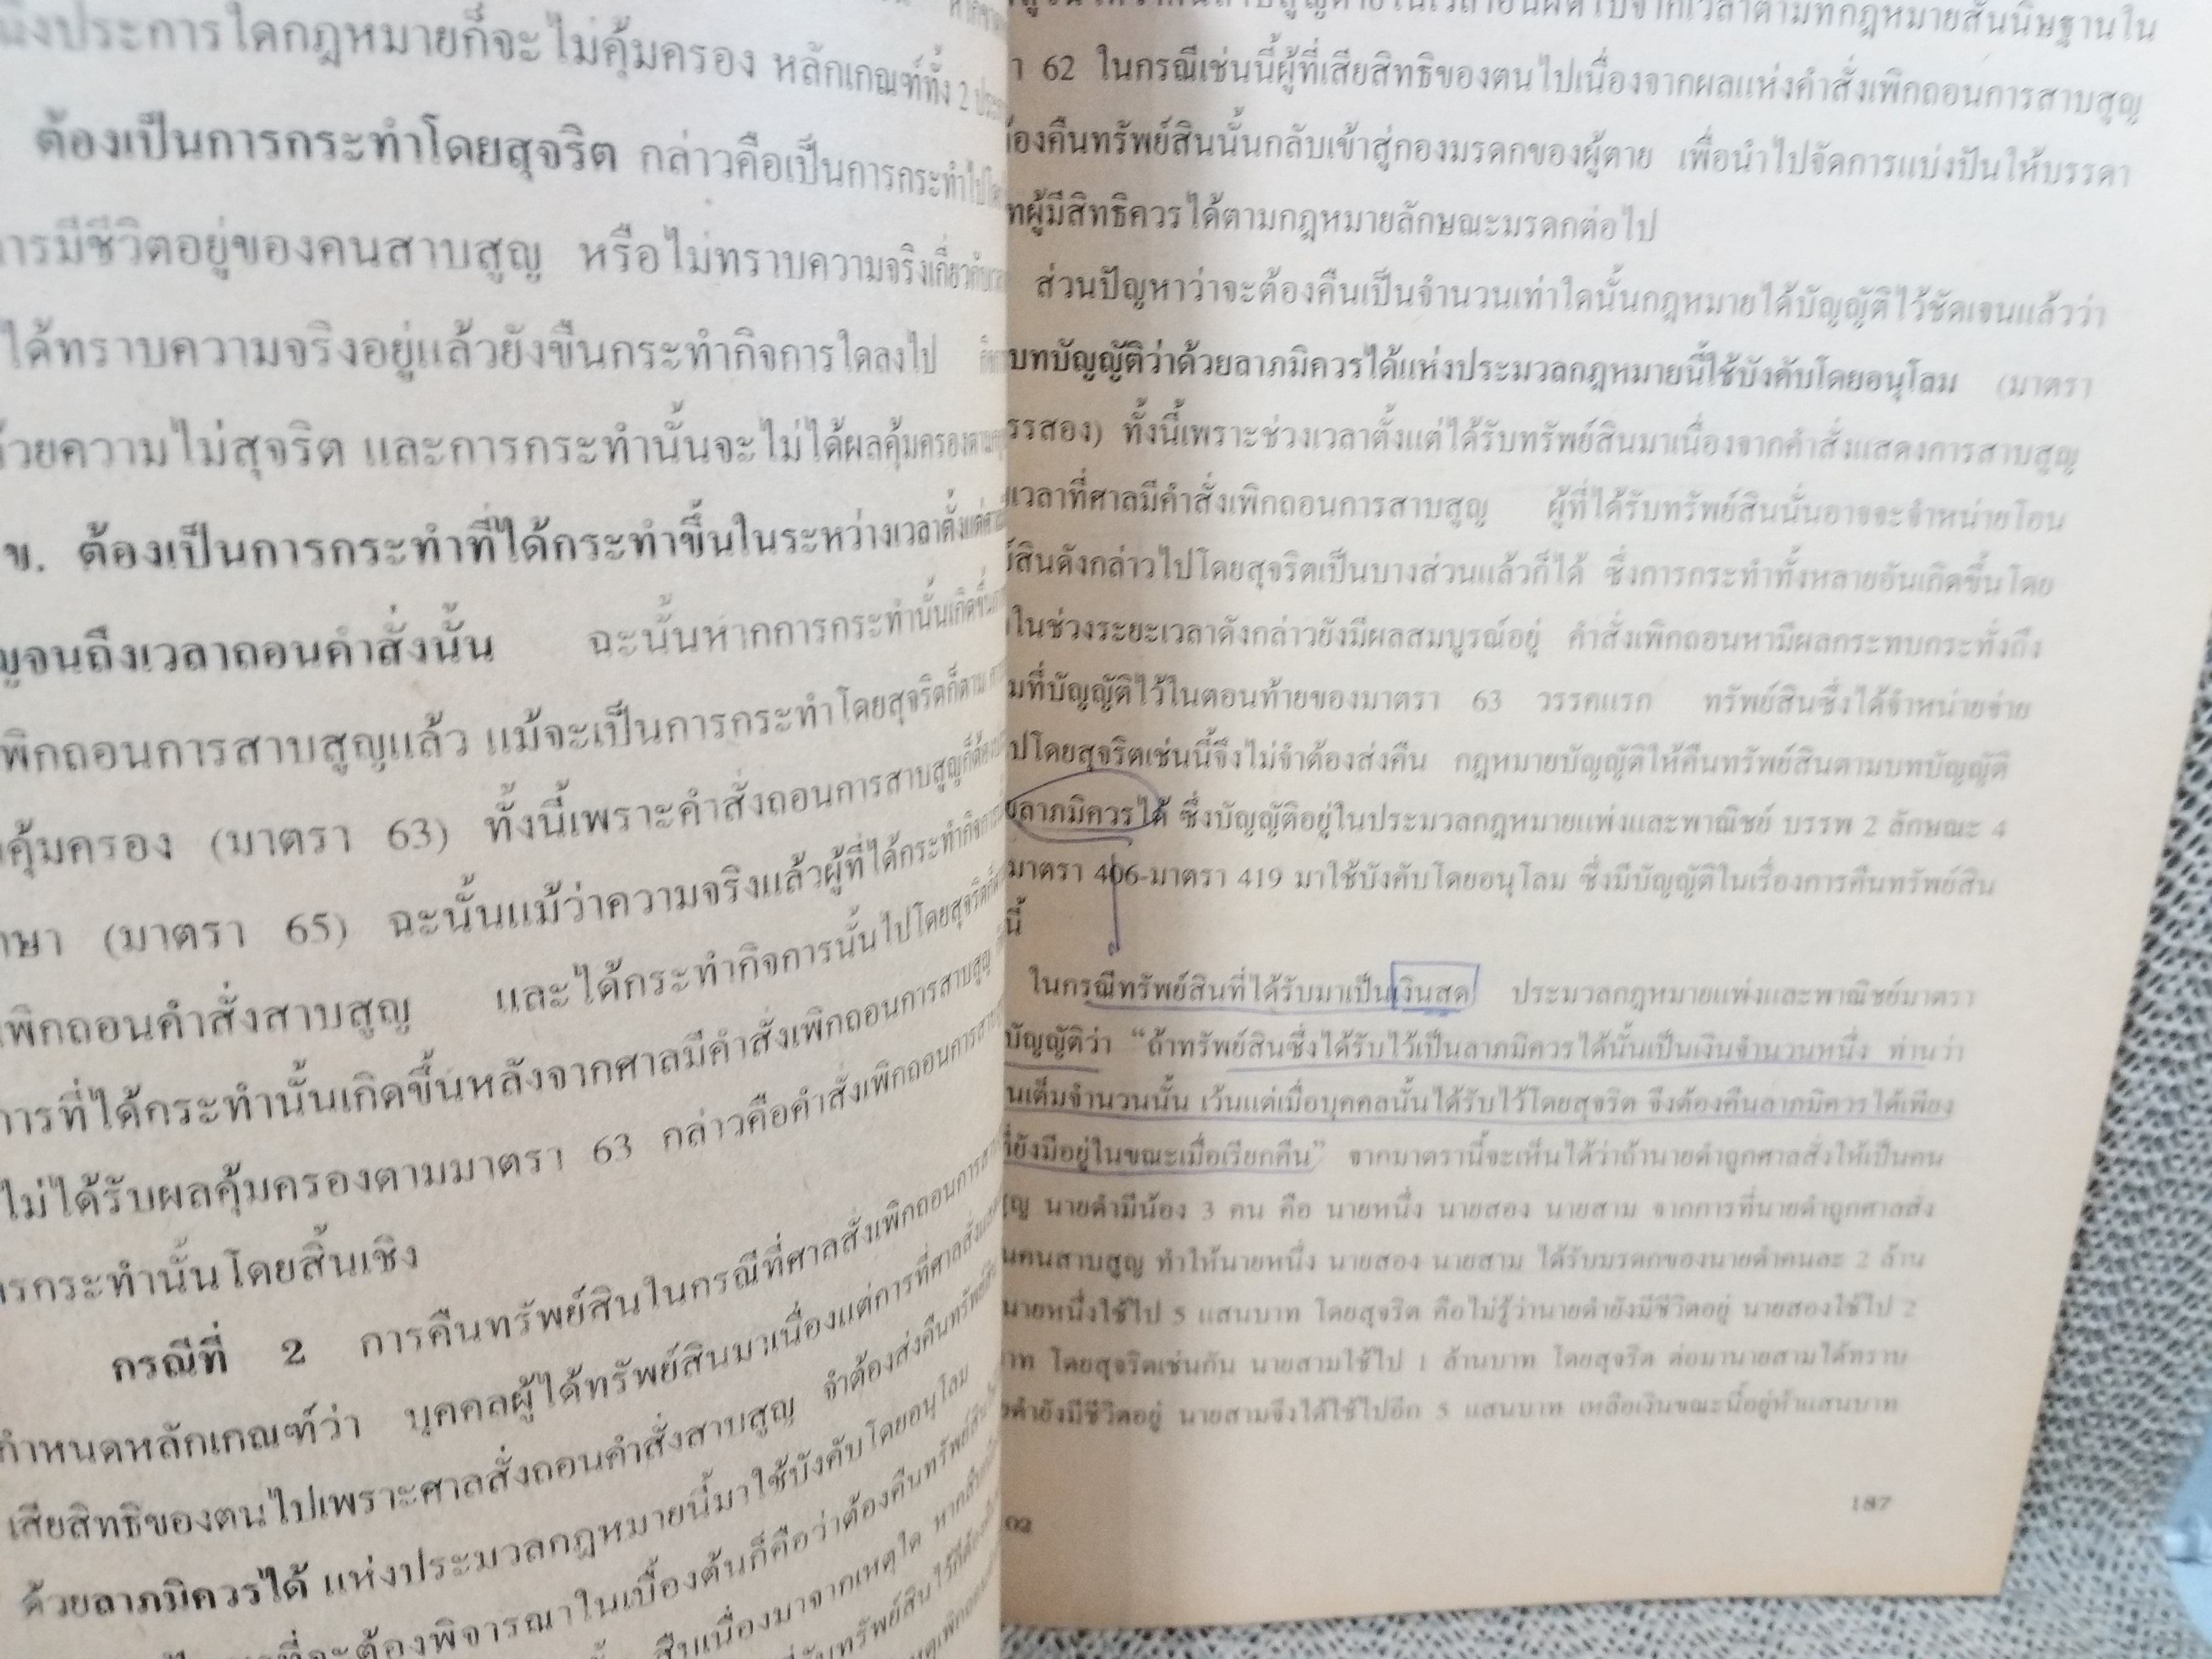 ประการใดกฎหมายก็จะไม่คุ้มครอง หลักเกณฑ์ทั้ง 2
ต้องเป็นการกระทำโดยสุจริต กล่าวคือเป็นการกระทำไป
การมีชีวิตอยู่ของคนสาบสูญ หรือไม่ทราบความจริงเกี่ยวกับ
ได้ทราบความจริงอยู่แล้วยังขืนกระทำกิจการใดลงไป
ด้วยความไม่สุจริต และการกระทำนั้นจะไม่ได้ผลคุ้มครอง
ข. ต้องเป็นการกระทำที่ได้กระทำขึ้นในระหว่างเวลาตั้งแต่
จนถึงเวลาถอนคำสั่งนั้น ฉะนั้นหากการกระทำนั้นเกิดขึ้น
เพิกถอนการสาบสูญแล้ว แม้จะเป็นการกระทำโดยสุจริตก็ตาม
คุ้มครอง (มาตรา 63) ทั้งนี้เพราะคำสั่งถอนการสาบสูญก็ต้อง
(มาตรา 65) ฉะนั้นแม้ว่าความจริงแล้วผู้ที่ได้กระทำกิจการ
เพิกถอนคำสั่งสาบสูญ และได้กระทำกิจการนั้นไปโดยสุจริตก็
การที่ได้กระทำนั้นเกิดขึ้นหลังจากศาลมีคำสั่งเพิกถอนการสาบสูญ
ไม่ได้รับผลคุ้มครองตามมาตรา 63 กล่าวคือคำสั่งเพิกถอนการ
การกระทำนั้นโดยสิ้นเชิง
กรณีที่ 2 การคืนทรัพย์สินในกรณีที่ศาลสั่งเพิกถอนการ
กำหนดหลักเกณฑ์ว่า บุคคลผู้ได้ทรัพย์สินมาเนื่องแต่การที่ศาลสั่ง
เสียสิทธิของตนไปเพราะศาลสั่งถอนคำสั่งสาบสูญ จำต้องส่งคืนทรัพย์สิน
ด้วยลาภมิควรได้ แห่งประมวลกฎหมายนี้มาใช้บังคับโดยอนุโลม
ที่จะต้องพิจารณาในเบื้องต้นก็คือว่าต้องคืนทรัพย์สิน
สืบเนื่องมาจากเหตุใด หาก
62 ในกรณีเช่นนี้ผู้ที่เสียสิทธิของตนไปเนื่องจากผลแห่งคำสั่งเพิกถอนการสาบสูญ
ต้องคืนทรัพย์สินนั้นกลับเข้าสู่กองมรดกของผู้ตาย เพื่อนำไปจัดการแบ่งปันให้บรรดา
ผู้มีสิทธิควรได้ตามกฎหมายลักษณะมรดกต่อไป
ส่วนปัญหาว่าจะต้องคืนเป็นจำนวนเท่าใดนั้นกฎหมายได้บัญญัติไว้ชัดเจนแล้วว่า
บทบัญญัติว่าด้วยลาภมิควรได้แห่งประมวลกฎหมายนี้ใช้บังคับโดยอนุโลม (มาตรา
วรรสอง) ทั้งนี้เพราะช่วงเวลาตั้งแต่ได้รับทรัพย์สินมาเนื่องจากคำสั่งแสดงการสาบสูญ
เวลาที่ศาลมีคำสั่งเพิกถอนการสาบสูญ ผู้ที่ได้รับทรัพย์สินนั่นอาจจะจำหน่ายโอน
สินดังกล่าวไปโดยสุจริตเป็นบางส่วนแล้วก็ได้ ซึ่งการกระทำทั้งหลายอันเกิดขึ้นโดย
ในช่วงระยะเวลาดังกล่าวยังมีผลสมบูรณ์อยู่ คำสั่งเพิกถอนหามีผลกระทบกระทั่งถึง
ที่บัญญัติไว้ในตอนท้ายของมาตรา 63 วรรคแรก ทรัพย์สินซึ่งได้จำหน่ายจ่าย
ไปโดยสุจริตเช่นนี้จึงไม่จำต้องส่งคืน กฎหมายบัญญัติให้คืนทรัพย์สินตามบทบัญญัติ
ลาภมิควรได้ ซึ่งบัญญัติอยู่ในประมวลกฎหมายแพ่งและพาณิชย์ บรรพ 2 ลักษณะ 4
มาตรา 406-มาตรา 419 มาใช้บังคับโดยอนุโลม ซึ่งมีบัญญัติในเรื่องการคืนทรัพย์สิน
นี้
ในกรณีทรัพย์สินที่ได้รับมาเป็นเงินสด ประมวลกฎหมายแพ่งและพาณิชย์มาตรา
บัญญัติว่า “ถ้าทรัพย์สินซึ่งได้รับไว้เป็นลาภมิควรได้นั้นเป็นเงินจำนวนหนึ่ง ท่านว่า
เต็มจำนวนนั้น เว้นแต่เมื่อบุคคลนั้นได้รับไว้โดยสุจริต จึงต้องคืนลาภมิควรได้เพียง
ที่ยังมีอยู่ในขณะเมื่อเรียกคืน” จากมาตรานี้จะเห็นได้ว่าถ้านายดำถูกศาลสั่งให้เป็นคน
นายดำมีน้อง 3 คน คือ นายหนึ่ง นายสอง นายสาม จากการที่นายดำถูกศาลสั่ง
คนสาบสูญ ทำให้นายหนึ่ง นายสอง นายสาม ได้รับมรดกของนายดำคนละ 2 ล้าน
นายหนึ่งใช้ไป 5 แสนบาท โดยสุจริต คือไม่รู้ว่านายดำยังมีชีวิตอยู่ นายสองใช้ไป 2
โดยสุจริตเช่นกัน นายสามใช้ไป 1 ล้านบาท โดยสุจริต ต่อมานายสามได้ทราบ
ดำยังมีชีวิตอยู่ นายสามจึงได้ใช้ไปอีก 5 แสนบาท เหลือเงินขณะนี้อยู่ห้าแสนบาท
02
187